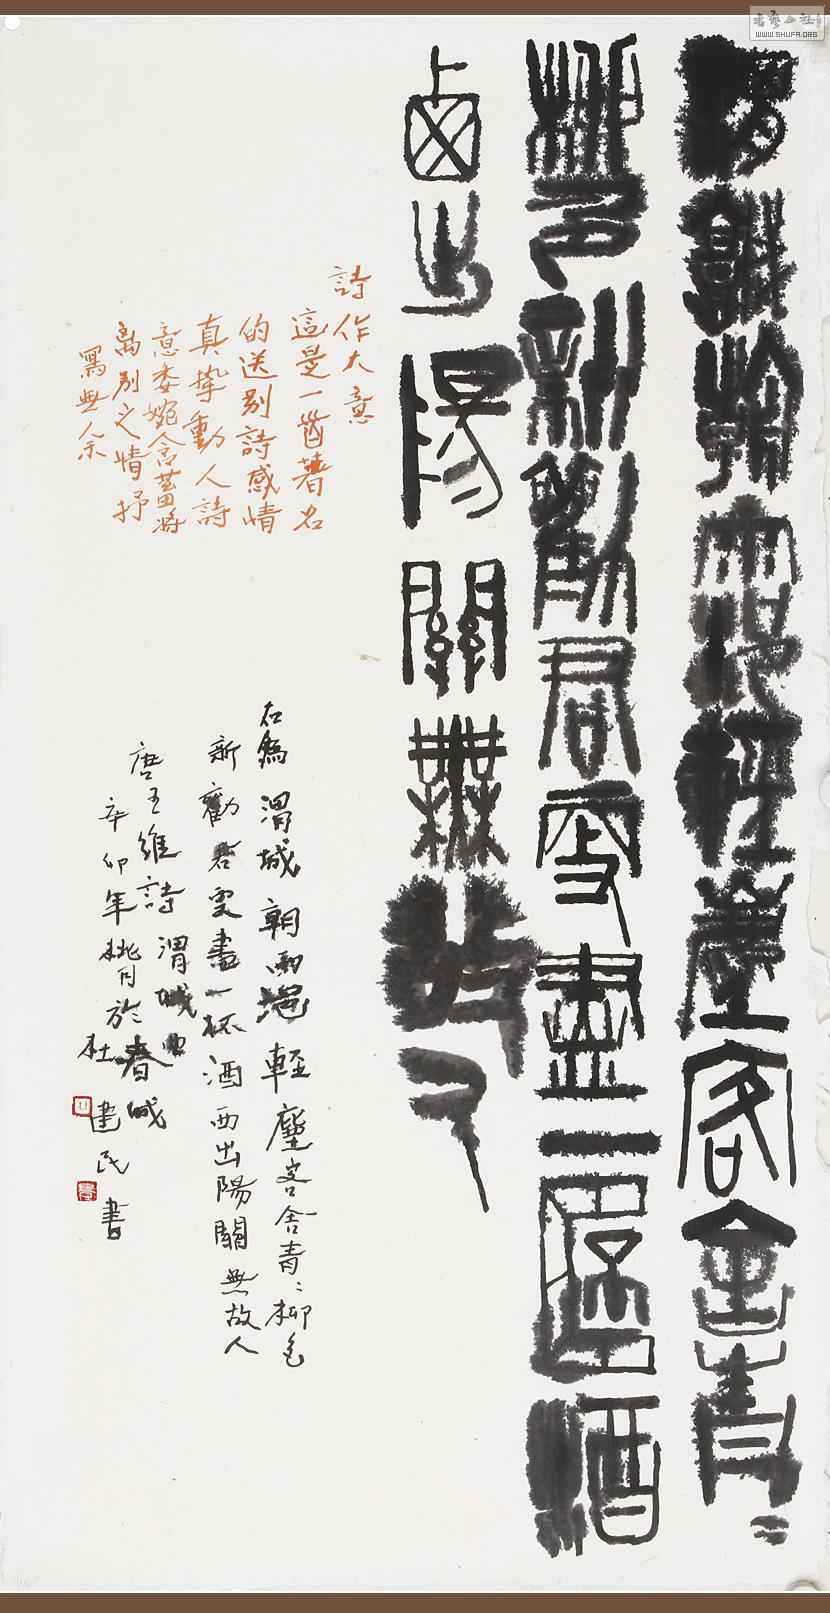 渭城朝雨浥輕塵客舍青〻
柳色新勸君更盡一杯酒
西出陽關無故人
詩作大意
這是一首著名
的送别詩感情
真挚動人詩
意委婉含蓄将
离别之情抒
寫無余
右為渭城朝雨浥輕塵客舍青〻柳色
新勸君更盡一杯酒西出陽關無故人
唐王維詩渭城曲
辛卯年桃月於春城
杜建民書
书艺公社
WWW.SHUFA.ORG